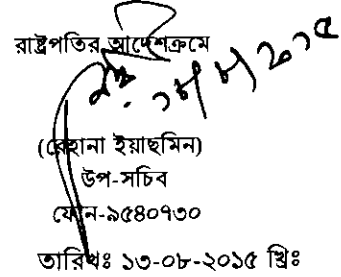 রাষ্ট্রপতির আদেশক্রমে
(রেহানা ইয়াছমিন)
উপ-সচিব
ফোন-৯৫৪০৭৩০
তারিখঃ ১৩-০৮-২০১৫ খ্রিঃ